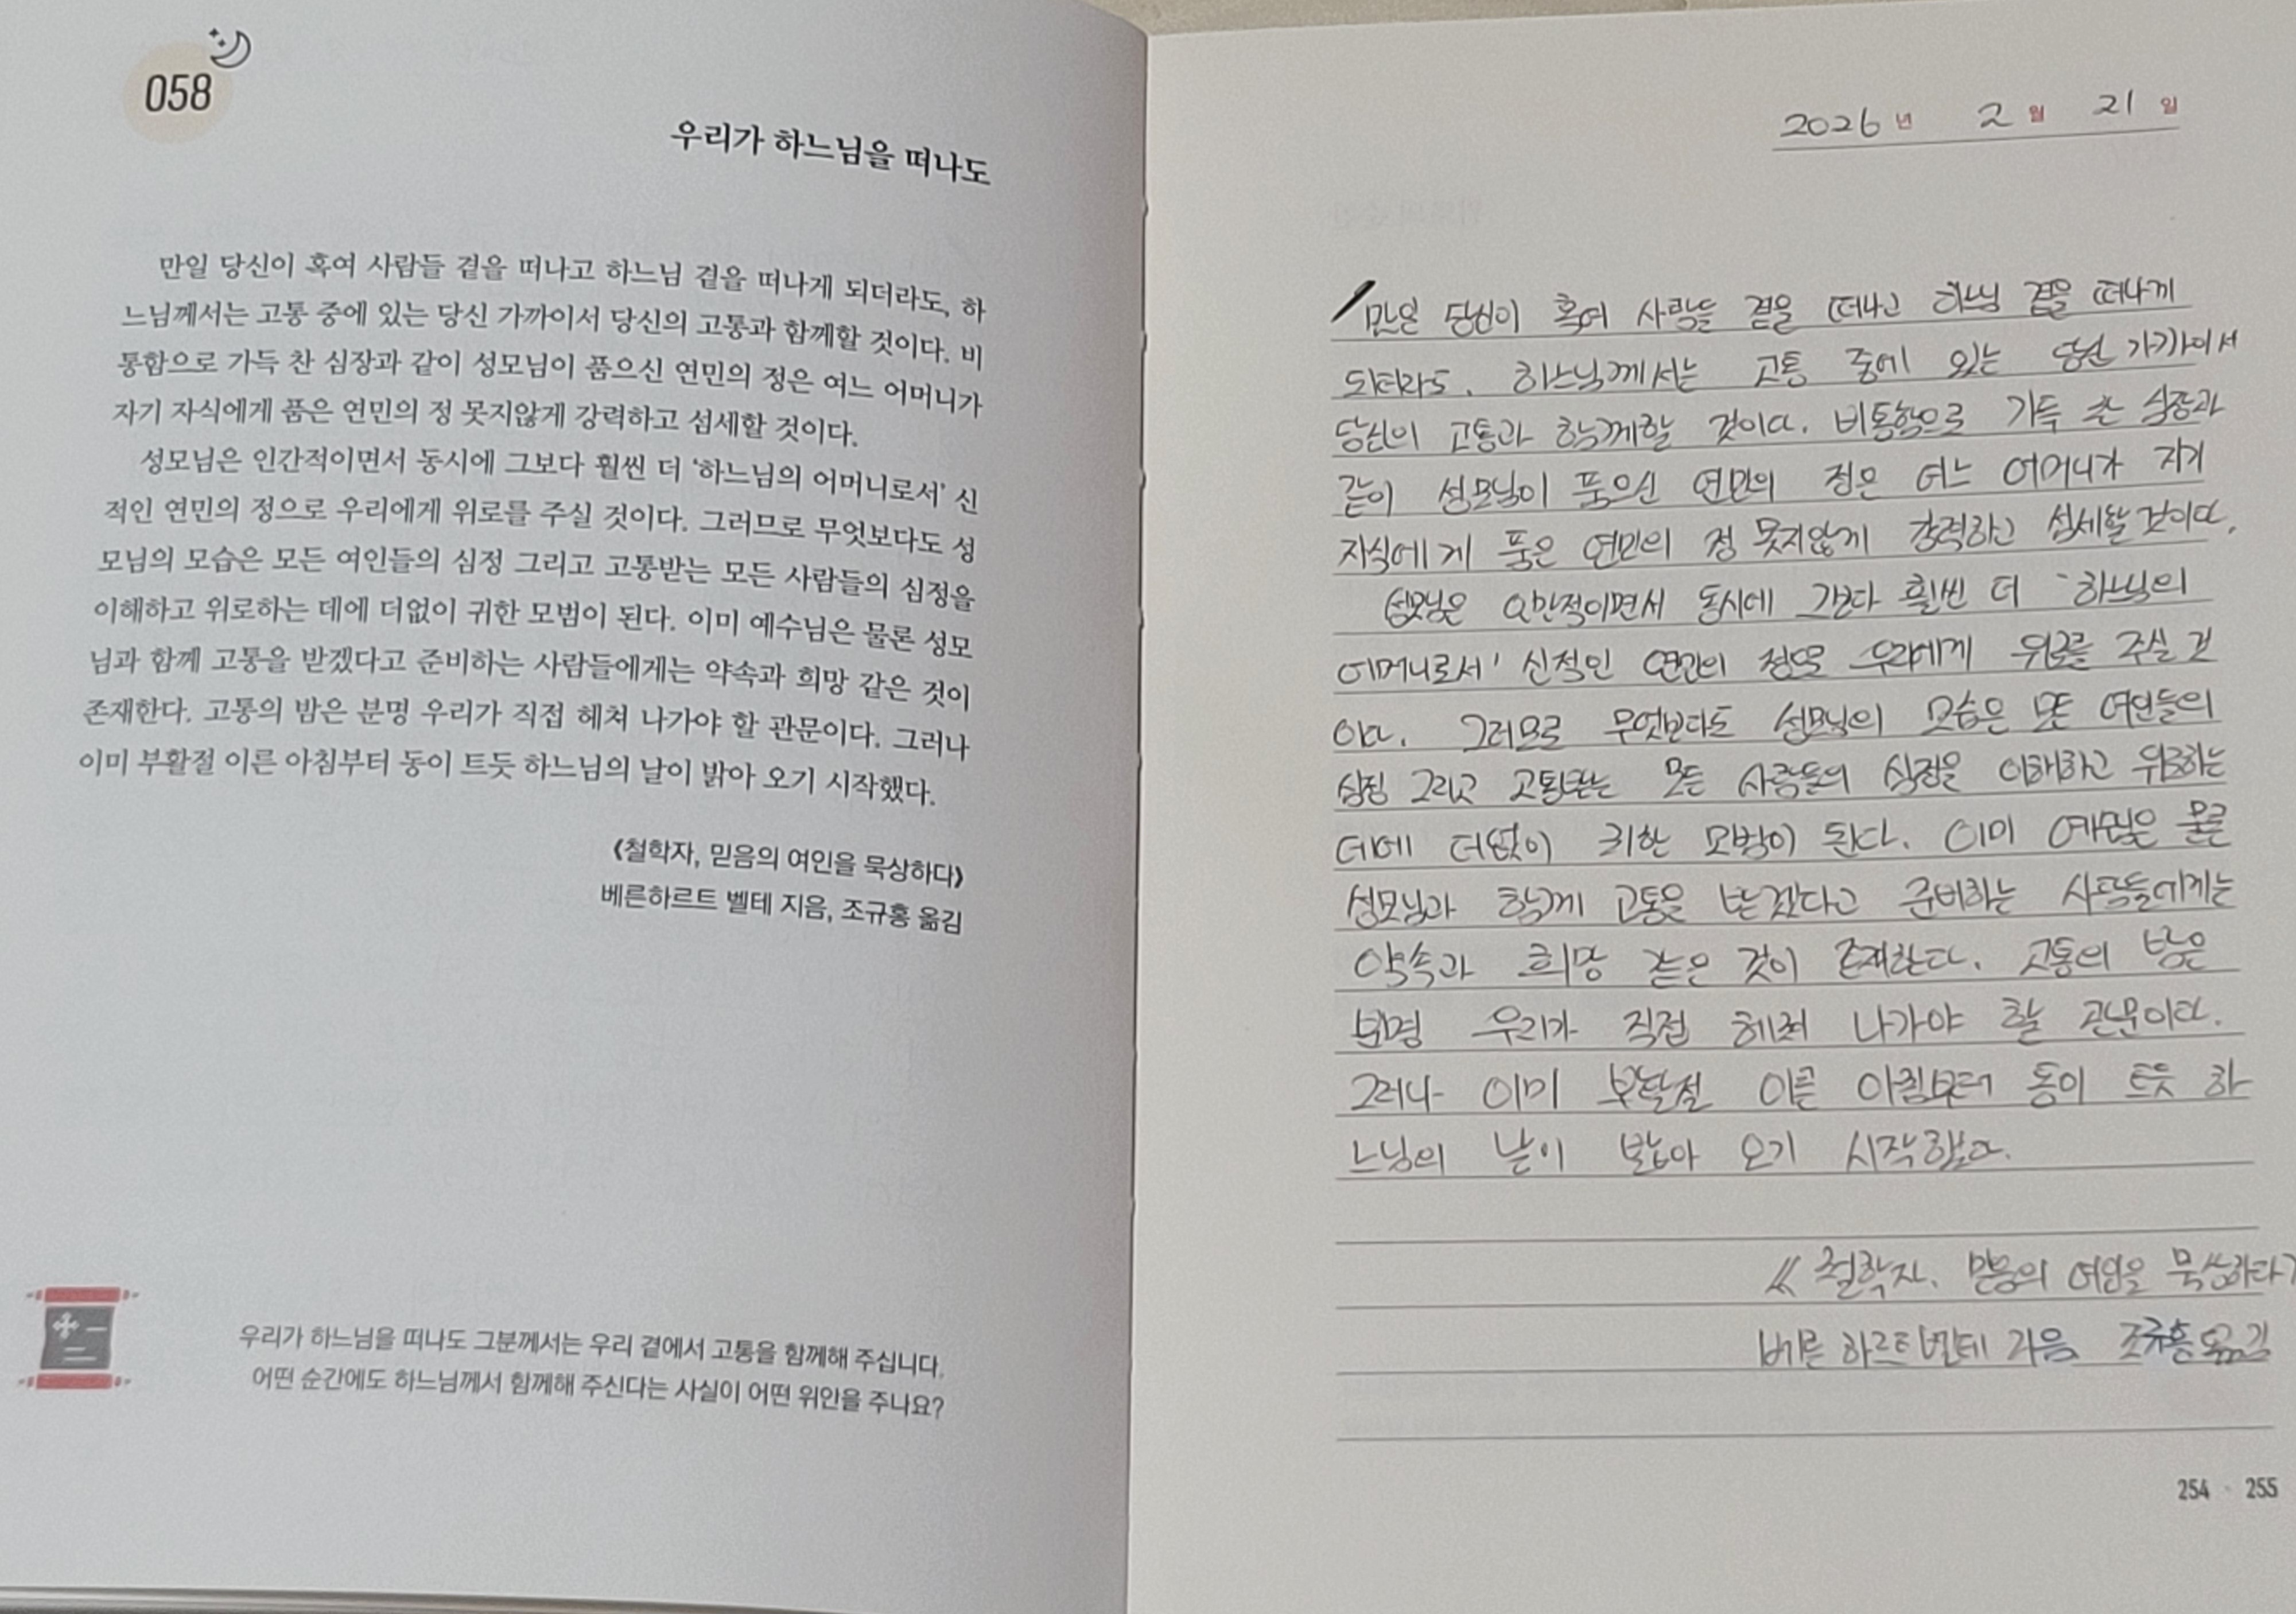 058
우리가 하느님을 떠나도
만일 당신이 혹여 사람들 곁을 떠나고 하느님 곁을 떠나게 되더라도, 하
느님께서는 고통 중에 있는 당신 가까이서 당신의 고통과 함께할 것이다. 비
통함으로 가득 찬 심장과 같이 성모님이 품으신 연민의 정은 여느 어머니가
자기 자식에게 품은 연민의 정 못지않게 강력하고 섬세할 것이다.
성모님은 인간적이면서 동시에 그보다 훨씬 더 ‘하느님의 어머니로서’ 신
적인 연민의 정으로 우리에게 위로를 주실 것이다. 그러므로 무엇보다도 성
모님의 모습은 모든 여인들의 심정 그리고 고통받는 모든 사람들의 심정을
이해하고 위로하는 데에 더없이 귀한 모범이 된다. 이미 예수님은 물론 성모
님과 함께 고통을 받겠다고 준비하는 사람들에게는 약속과 희망 같은 것이
존재한다. 고통의 밤은 분명 우리가 직접 헤쳐 나가야 할 관문이다. 그러나
이미 부활절 이른 아침부터 동이 트듯 하느님의 날이 밝아 오기 시작했다.
《철학자, 믿음의 여인을 묵상하다》
베른하르트 벨테 지음, 조규홍 옮김
우리가 하느님을 떠나도 그분께서는 우리 곁에서 고통을 함께해 주십니다.
어떤 순간에도 하느님께서 함께해 주신다는 사실이 어떤 위안을 주나요?
2026년 2월 21일
만일 당신이 혹여 사람들 곁을 떠나고 하느님 곁을 떠나게
되더라도. 하느님께서는 고통 중에 있는 당신 가까이서
당신의 고통과 함께할 것이다. 비통함으로 가득 찬 심장과
같이 성모님이 품으신 연민의 정은 여느 어머니가 자기
자식에게 품은 연민의 정 못지않게 강력하고 섬세할 것이다.
성모님은 인간적이면서 동시에 그보다 훨씬 더 '하느님의
어머니로서' 신적인 연민의 정으로 우리에게 위로를 주실 것
이다. 그러므로 무엇보다도 성모님의 모습은 모든 여인들의
심정 그리고 고통받는 모든 사람들의 심정을 이해하고 위로하는
데에 더없이 귀한 모범이 된다. 이미 예수님은 물론
성모님과 함께 고통을 받겠다고 준비하는 사람들에게는
약속과 희망 같은 것이 존재한다. 고통의 밤은
분명 우리가 직접 헤쳐 나가야 할 관문이다.
그러나 이미 부활절 이른 아침부터 동이 트듯 하
느님의 날이 밝아 오기 시작했다.
《 철학자. 믿음의 여인을 묵상하다》
베른하르트 벨테 지음 조규홍 옮김
254 · 255